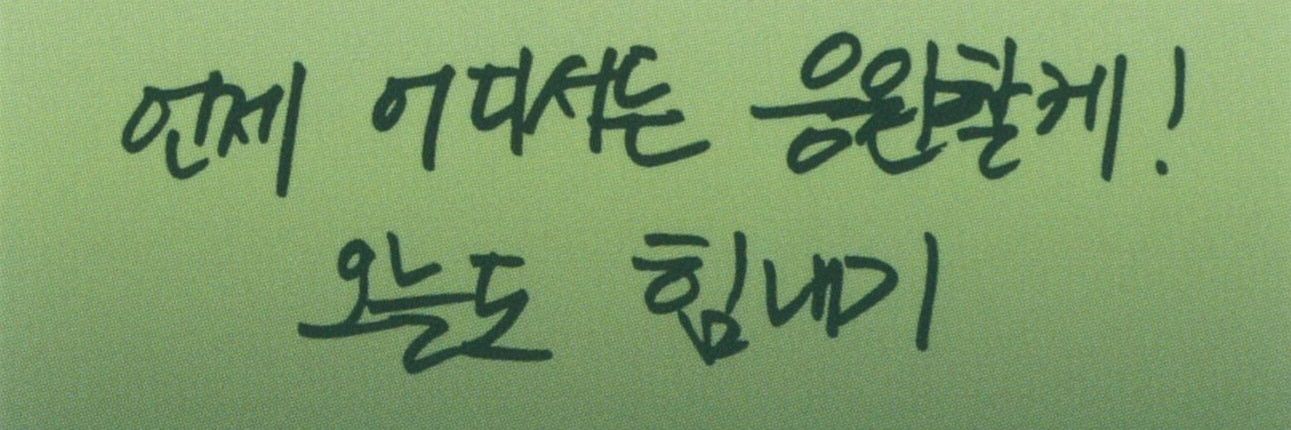 언제 어디서든 응원할게!
오늘도 힘내기